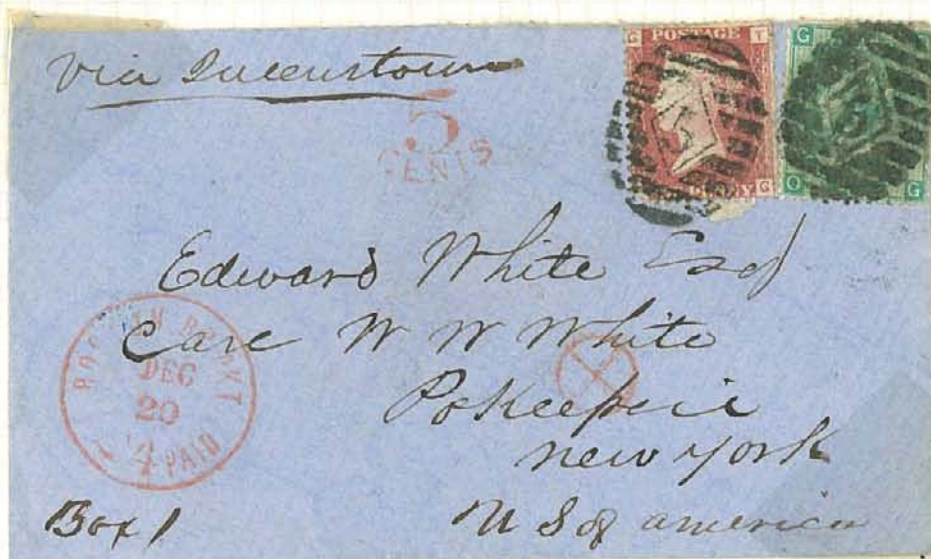 Via Queenstown
5
CENTS
G POSTAGE T
G
G
O G
Edward White Esq
Care W W White
PoKeepsie
new york
U S of america
BOSTON BR. PKT
DEC
20
PAID
Box 1